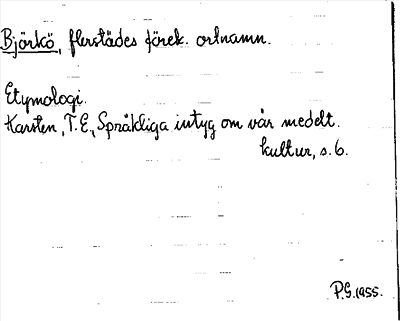 Björkö, flerstädes förek. ortnamn.
Etymologi.
Karsten, T.E., Språkliga intyg om vår medelt.
kultur, s. 6.
P.G. 1955.